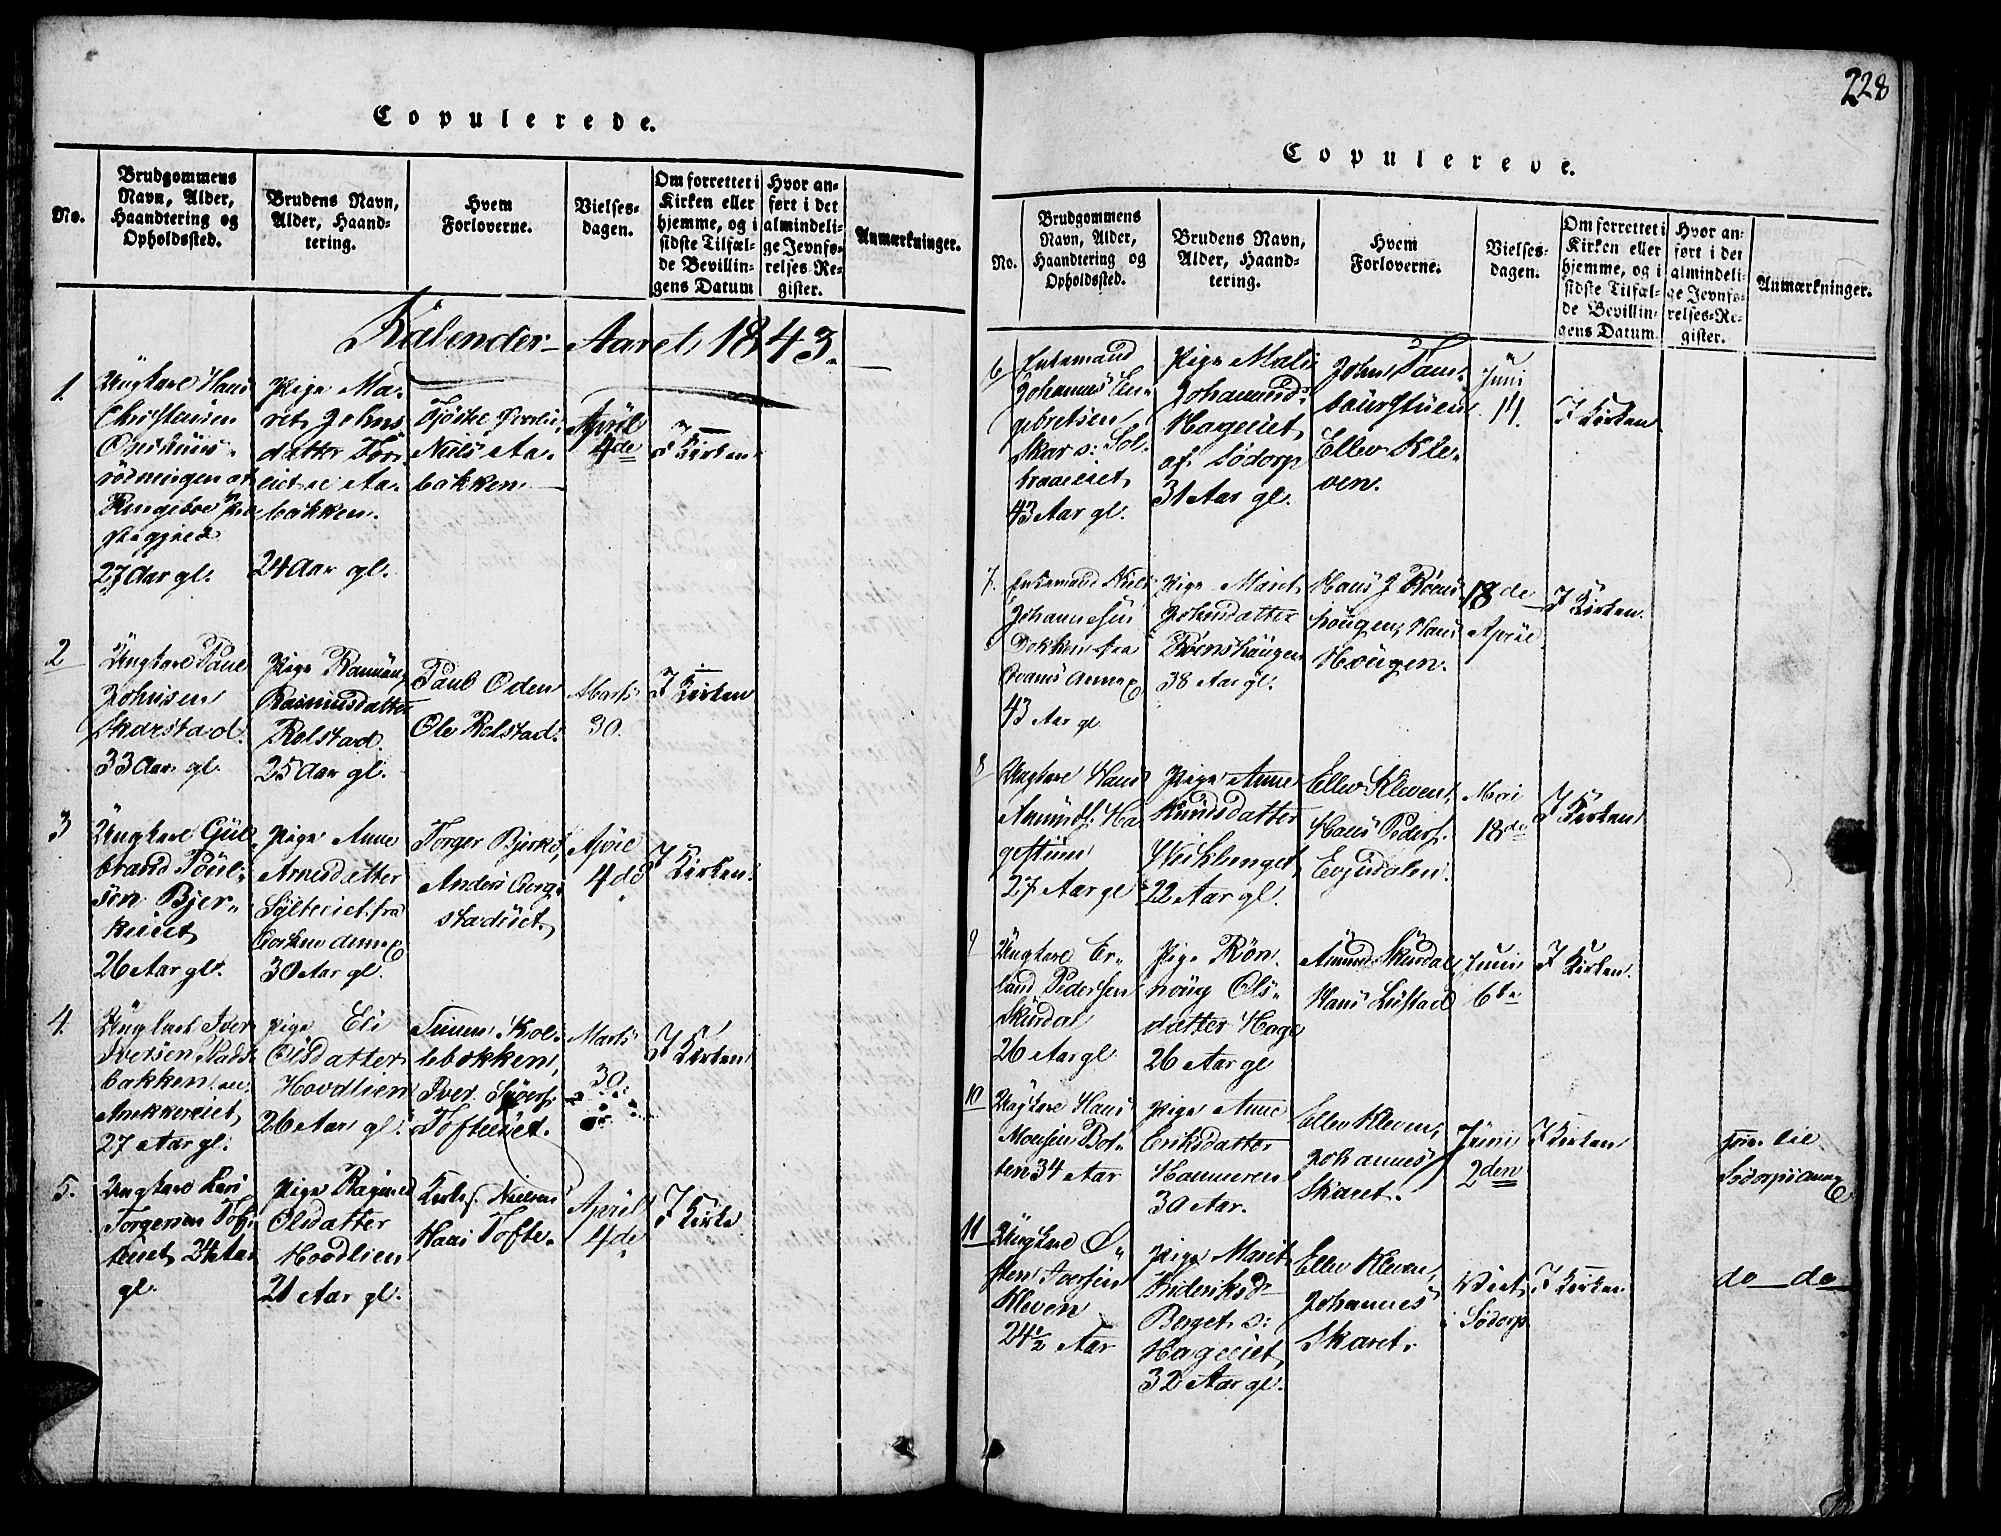 Copulerede.
No.
Brudgommens
Navn, Alder,
Haandtering og
Opholdssted.
Brudens Navn,
Alder, Haand-
tering.
Hvem
Forloverne.
Vielses-
dagen.
Om forrettet i
Kirken eller
hjemme, og i
sidste Tilfæl-
de Bevillin-
gens Datum
Hvor an-
ført i det
almindeli-
ge Jevnfø-
relses-Re-
gister.
Anmærkninger.
Kalender-Aaret 1843.
1.
Ungkarl Hans
Christensen
Ringeboe
27 Aar gl.
Pige Ma-
rit Johns
datter
Aa-
bakken.
24 Aar gl.
Niels Aa-
bakken
April
4de
I Kirken
2
Ungkarl Paul
Johnsen
Skarstad.
33 Aar gl.
Pige
Rasmusdatter
Rolstad.
25 Aar gl.
Paul Oden
Ole Rolstad.
Marts
30.
I Kirken
3
Ungkarl Gul-
brand Poul-
sen Bjer-
keeiet
26 Aar gl.
Pige Anne
Arnesdatter
Sylteeiet fra
30 Aar gl.
Torger Bjerke,
Anders
stadeiet.
April
4de
I Kirken.
4.
Ungkarl Iver
Iversen
bakken
27 Aar gl.
Pige Eli
Olsdatter
Hovdlien
26 Aar gl.
Simen Kol-
lebakken,
Iver
Tofteeiet.
Marts
30.
I Kirken
5.
Ungkarl Lars
Torgersen Tof-
teeiet 24 Aar
gl.
Pige Ragnild
Olsdatter
Hovdlien
21 Aar gl.
Hans Tofte.
April
4de
I Kirke
228
Copulerede.
No.
Brudgommens
Navn, Alder,
Haandtering og
Opholdssted.
Brudens Navn,
Alder, Haand-
tering.
Hvem
Forloverne.
Vielses-
dagen.
Om forrettet i
Kirken eller
hjemme, og i
sidste Tilfæl-
de Bevillin-
gens Datum.
Hvor an-
ført i det
almindeli-
ge Jevnfø-
relses-Re-
gister.
Anmærkninger.
6
Enkemand
Johannes En-
gebretsen
Sol-
braaeiet
43 Aar gl.
Pige Mali
Johannesd.
Hageeiet
af Sødorp
31 Aar gl.
John
Ellev Kle-
ven.
Juni
14.
I Kirken
7.
Enkemand Niels
Johannesen
Dokken fra
43 Aar gl
Pige Marit
Johnsdatter
Rønshaugen
38 Aar gl.
Hans J Røns-
hougen, Hans
Hougen.
18de
April
I Kirken.
8
Ungkarl Hans
Amunds. Ha-
gestuen
27 Aar gl
Pige Anne
Knudsdatter
22 Aar gl.
Ellev Kleven,
Hans Peders.
Mai
18de
I Kirken
9
Ungkarl Er-
land Pedersen
Skurdal
26 Aar gl
Pige Røn-
noug Ols-
datter Hage
26 Aar gl
Amund Skurdal
Hans Lustad
Juni
6te
I Kirken.
10
Ungkarl Hans
Monsen Bot-
ten 34 Aar
Pige Anne
Eriksdatter
Hammeren
30 Aar.
Ellev Kleven,
Johannes
Skaret.
Juni
2den
I Kirken
Sødorps annex
11
Ungkarl Ø-
sten Iversen
Kleven
24½ Aar
Pige Marit
Frideriksd.
Berget s:
Hageeiet
32 Aar gl.
Ellev Kleven,
Johannes
Skaret.
Viet
i Sødorp
I Kirken
do do